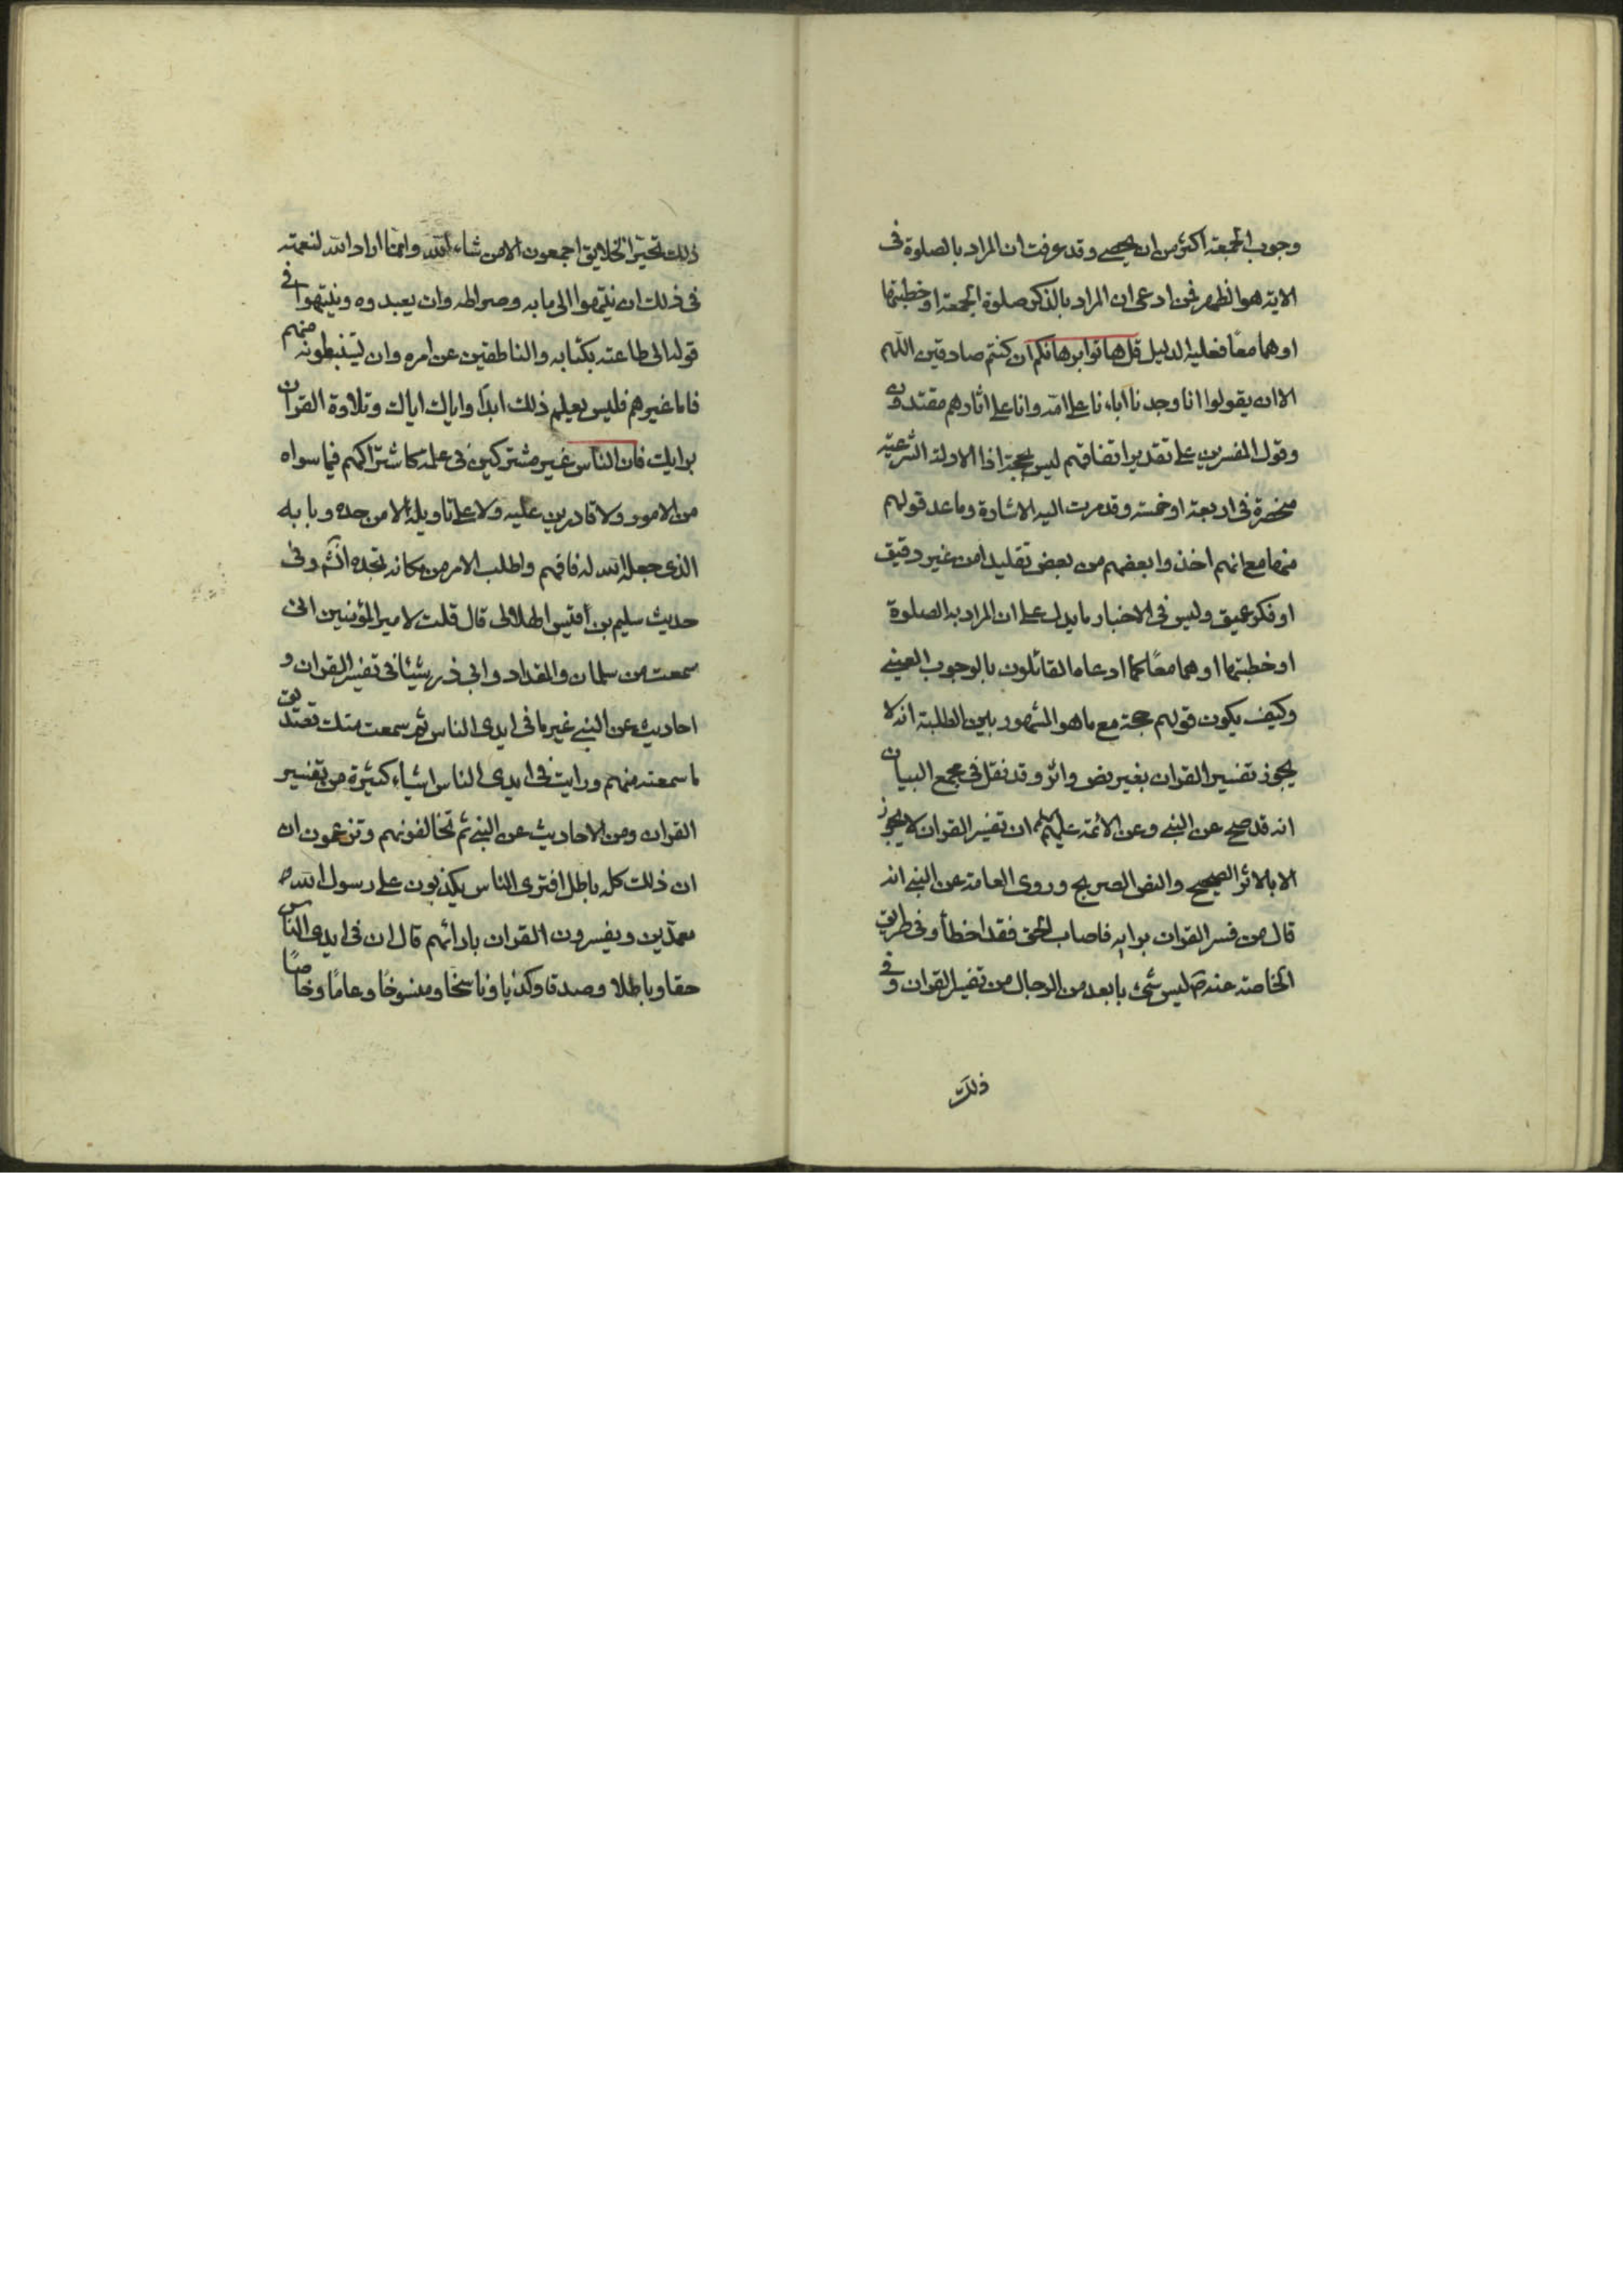 وجوب الجمعة اكثر من ان يحصى وقد عرفت ان المراد بالصلوة فى
الاية هو الظهر فمن ادعى ان المراد بالذكر صلوة الجمعة او خطبتها
او هما معًا فعليه الدليل قل هاتوا برهانكم ان كنتم صادقين اللهم
الا ان يقولوا انا وجدنا اباءنا على امة وانا على اثارهم مقتدون
وقول المفسرين على تقدير اتفاقهم ليس بحجة اذا الادلة الشرعية
منحصرة فى اربعة او خمسة وقد مرت اليه الاشارة وما عد قولهم
منها مع انهم اخذوا بعضهم من بعض تقليدا من غير دقيق
او فكر عميق وليس فى الاخبار ما يدل على ان المراد به الصلوة
او خطبتها او هما معًا كما ادعاه القائلون بالوجوب العينى
وكيف يكون قولهم حجة مع ما هو المشهور بين الطلبة انه لا
يجوز تفسير القران بغير نص واثر وقد نقل فى مجمع البيان
انه قد صح عن النبى وعن الائمة عليهم ان تفسير القران لا يجوز
الا بالاثر الصحيح والنص الصريح وروى العامة عن النبى انه
قال من فسر القران برايه فاصاب الحق فقد اخطأ وفى طريق
الخاصة عنه ص ليس شئ بابعد من الرجال من تفسير القران وفى
ذلك
ذلك تحيّر الخلايق اجمعون الا من شاء الله وانما اراد الله لنعمته
فى ذلك ان ينتهوا الى بابه وصراطه وان يعبدوه وينتهوا فى
قوله الى طاعته بكتابه والناطقين عن امره وان يستنبطونه منهم
فاما غيرهم فليس يعلم ذلك ابدًا واياك اياك وتلاوة القران
برايك فان الناس غير مشتركين فى علمه كاشتراكهم فيما سواه
من الامور ولا قادرين عليه ولا على تاويله الا من حده وبابه
الذى جعله الله له فافهم واطلب الامر من مكانه تجده انشه وفى
حديث سليم بن اقيس الهلالى قال قلت لامير المؤمنين انى
سمعت من سلمان والمقداد وابى ذر شيئا فى تفسير القران و
احاديث عن النبى غير ما فى ايدى الناس ثم سمعت منك تصديق
ما سمعته منهم ورايت فى ايدى الناس اشياء كثيرة من تفسير
القران ومن الاحاديث عن النبى ثم تخالفونهم وتزعمون ان
ان ذلك كله باطل افترى الناس يكذبون على رسول الله ص
معمدّين ويفسرون القران بارائهم قال ان فى ايدى الناس
حقا وباطلا وصدقا وكذبا وناسخًا ومنسوخًا وعامًا وخاصًا